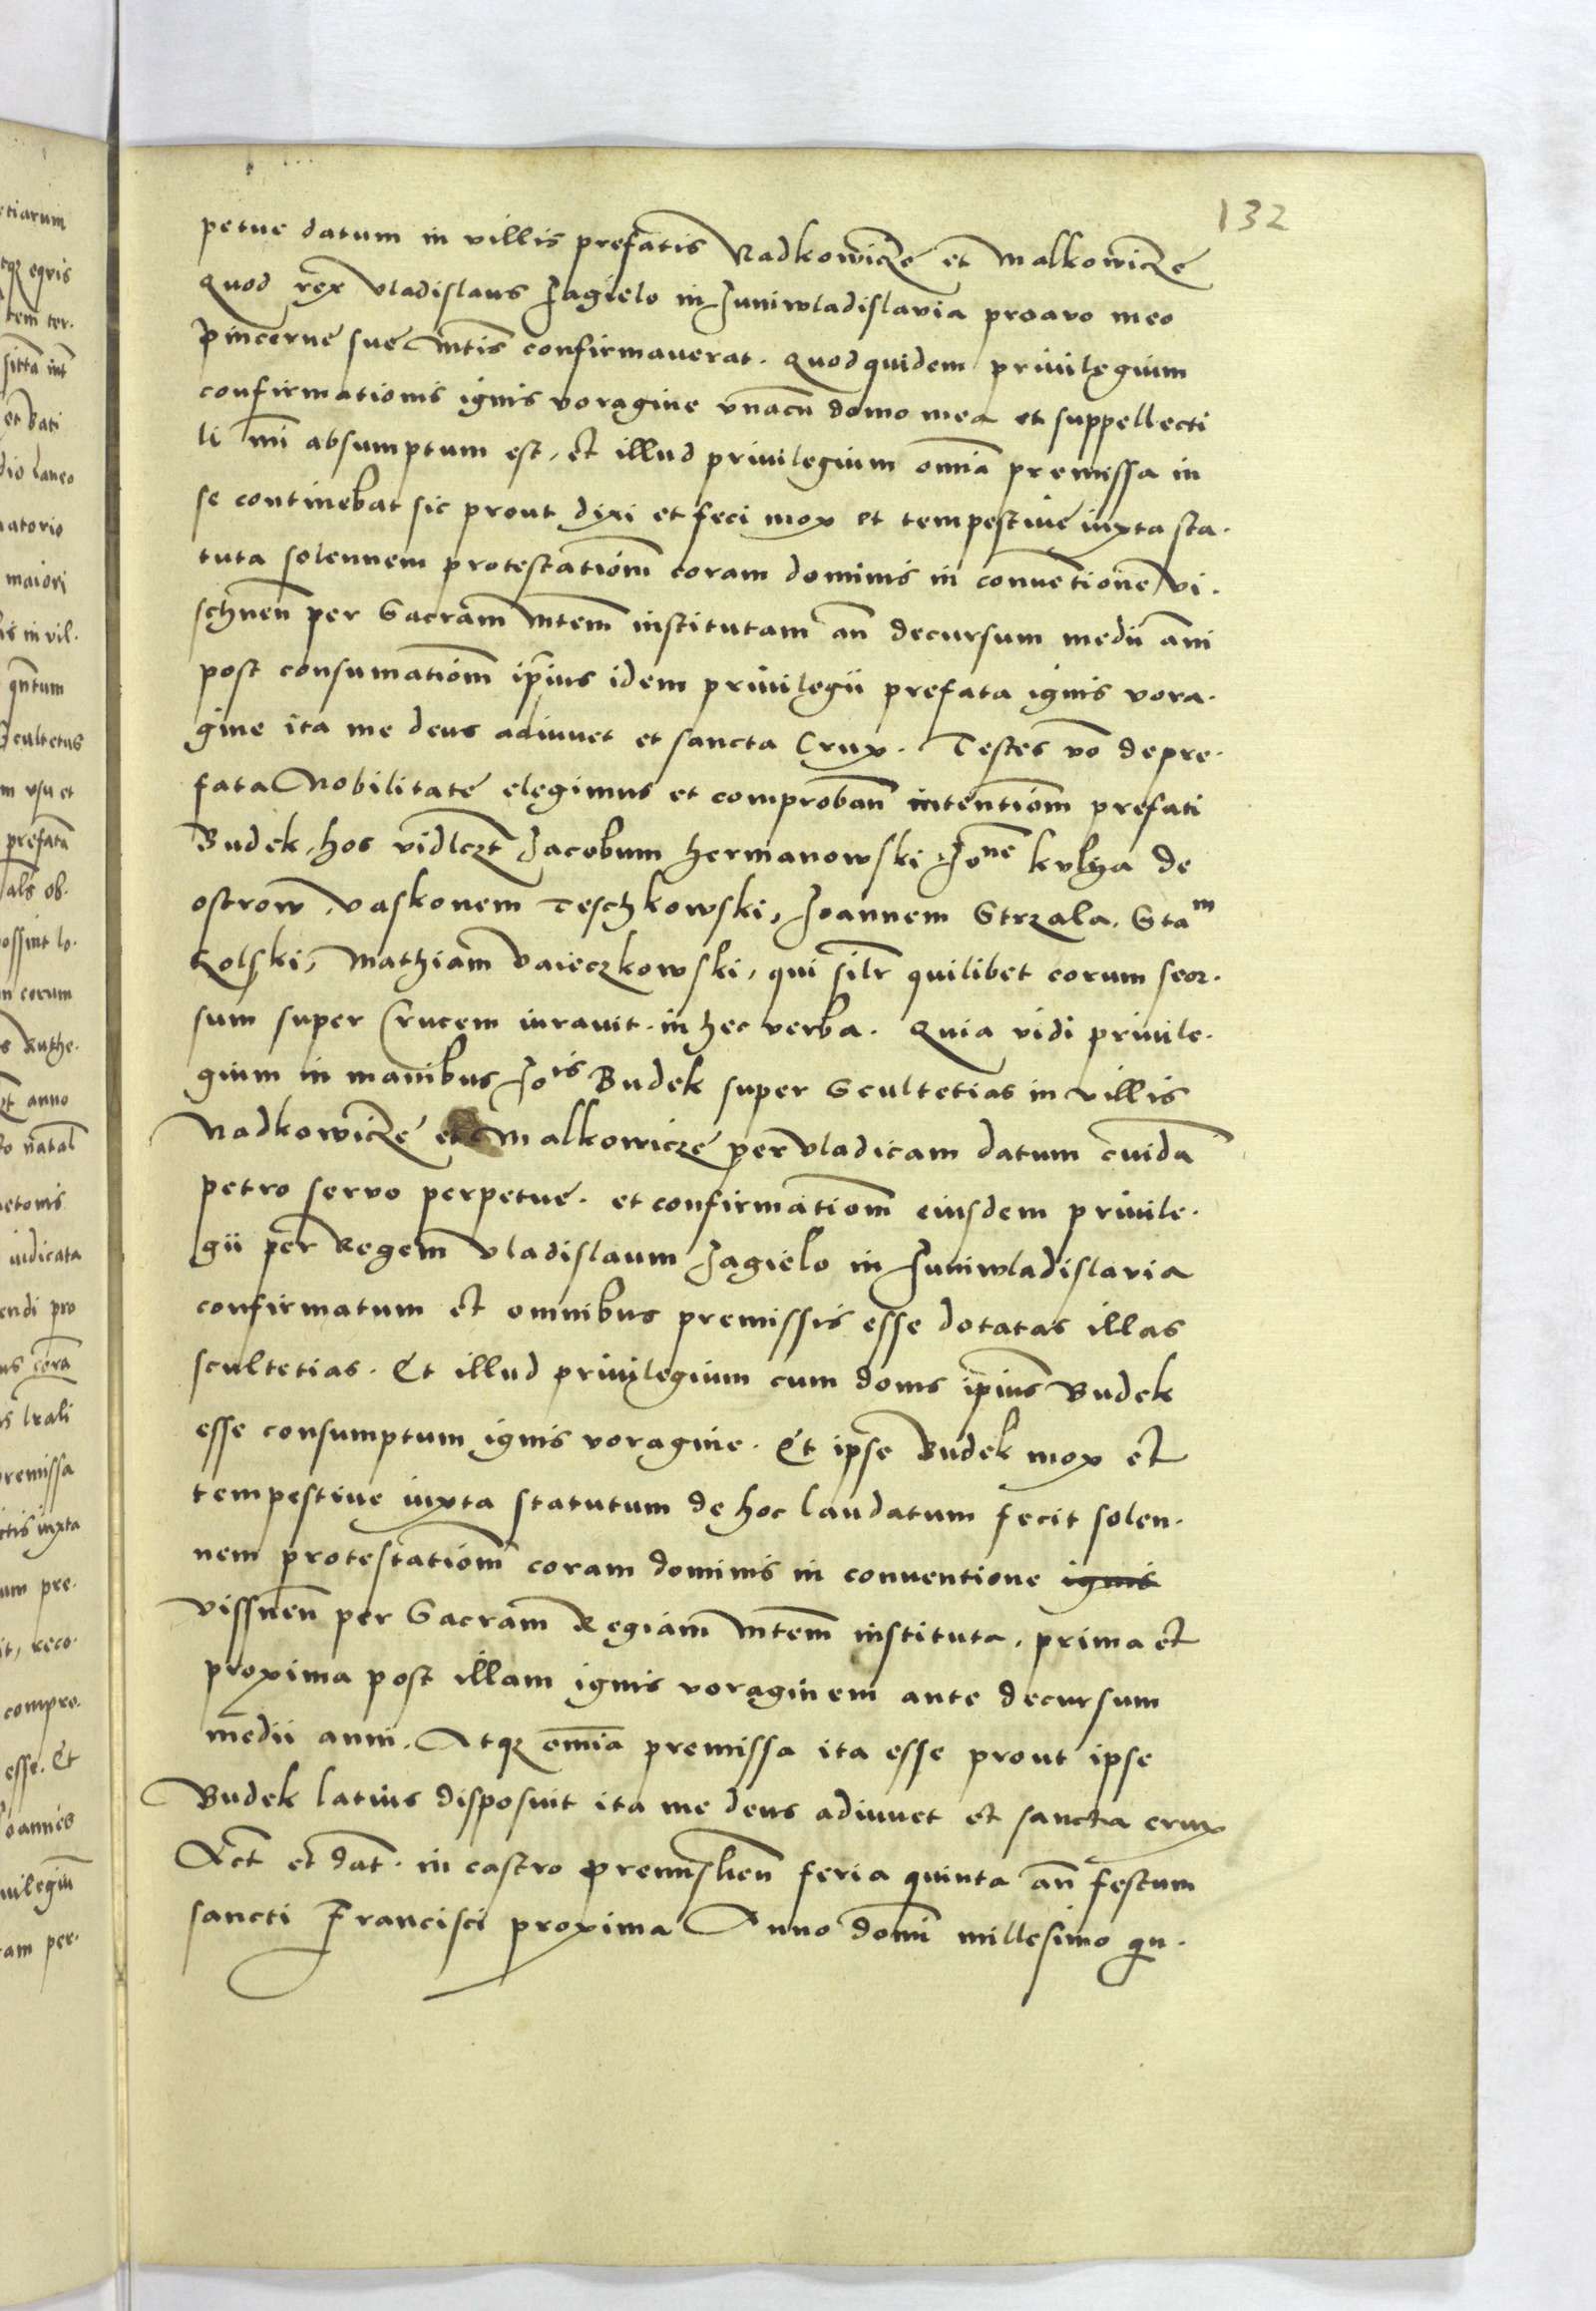 132
petue datum in villis prefatis Nadkowicze et Malkowicze
Quod rex Vladislaus Jagielo in Juniwladislavia proavo meo
Pincerne sue Mtis confirmaverat. Quod quidem privilegium
confirmationis ignis voragine vnacu domo mea et suppellecti
li mi absumptum est, et illud privilegium omia premissa in
se continebat sic prout dixi et feci mox et tempestive iuxta sta.
tuta solennem protestatiom coram dominis in conventione Vi.
schnen per Sacram Mtem institutam an decursum medii ani
post consumatiom ipius idem privilegii prefata ignis vora.
gine ita me deus adiuvet et sancta Crux. Testes vo de pre.
fata Nobilitate elegimus et comproban intentiom prefati
Budek, hos vidlczt Jacobum Hermanowski Jone Kulha de
Ostrow, Vaskonem Teschkowski, Joannem Strzala. Stam
Rolski, Mathiam Vaieczkowski, qui silr quilibet eorum seor.
sum super Crucem iuravit. in hec verba. Quia vidi privile.
gium in manibus Jois Budek super Scultetias in villis
Nadkowicze et Malkowicze per Vladicam datum cuida
petro servo perpetue. et confirmatiom eiusdem privile.
gii per Regem Vladislaum Jagielo in Juniwladislavia
confirmatum et omnibus premissis esse dotatas illas
scultetias. Et illud privilegium cum doms ipius Budek
esse consumptum ignis voragine. Et ipse Budek mox et
tempestive iuxta statutum de hoc laudatum fecit solen.
nem protestatiom coram dominis in conventione ignis
Vissnen per Sacram Regiam Mtem instituta, prima et
proxima post illam ignis voraginem ante decursum
medii anni. Atq omia premissa ita esse prout ipse
Budek latius disposuit ita me deus adiuvet et sancta crux
Act et dat. in castro premislien feria quinta an festum
sancti Francisci proxima Anno domi millesimo qu.